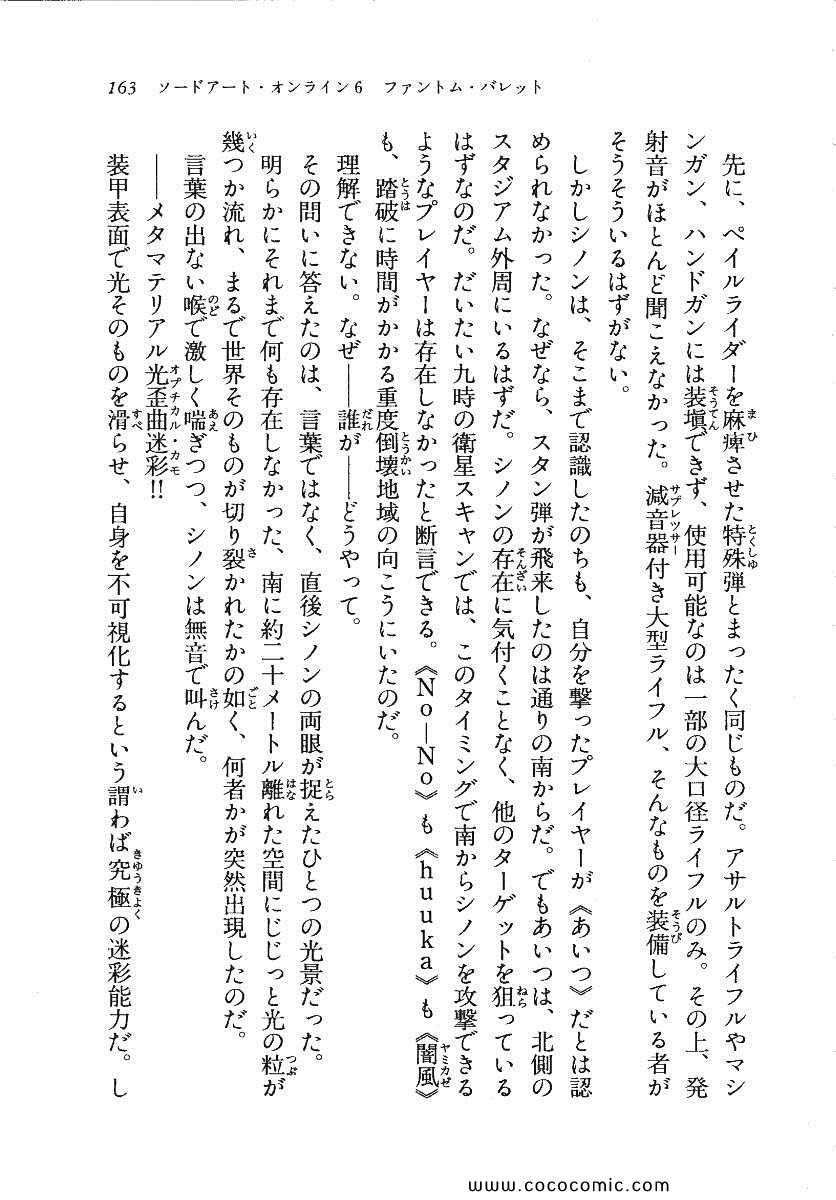 163 ソードアート・オンライン6 ファントム・バレット
先に、ペイルライダーを麻痺させた特殊弾とまったく同じものだ。アサルトライフルやマシ
ンガン、ハンドガンには装塡できず、使用可能なのは一部の大口径ライフルのみ。その上、発
射音がほとんど聞こえなかった。減音器付き大型ライフル、そんなものを装備している者が
そうそういるはずがない。
しかしシノンは、そこまで認識したのちも、自分を撃ったプレイヤーが《あいつ》だとは認
められなかった。なぜなら、スタン弾が飛来したのは通りの南からだ。でもあいつは、北側の
スタジアム外周にいるはずだ。シノンの存在に気付くことなく、他のターゲットを狙っている
はずなのだ。だいたい九時の衛星スキャンでは、このタイミングで南からシノンを攻撃できる
ようなプレイヤーは存在しなかったと断言できる。《No-No》も《huuka》も《闇風》
も、踏破に時間がかかる重度倒壊地域の向こうにいたのだ。
理解できない。なぜ――誰が――どうやって。
その問いに答えたのは、言葉ではなく、直後シノンの両眼が捉えたひとつの光景だった。
明らかにそれまで何も存在しなかった、南に約二十メートル離れた空間にじじっと光の粒が
幾つか流れ、まるで世界そのものが切り裂かれたかの如く、何者かが突然出現したのだ。
言葉の出ない喉で激しく喘ぎつつ、シノンは無音で叫んだ。
――メタマテリアル光歪曲迷彩!!
装甲表面で光そのものを滑らせ、自身を不可視化するという謂わば究極の迷彩能力だ。し
www.cococomic.com